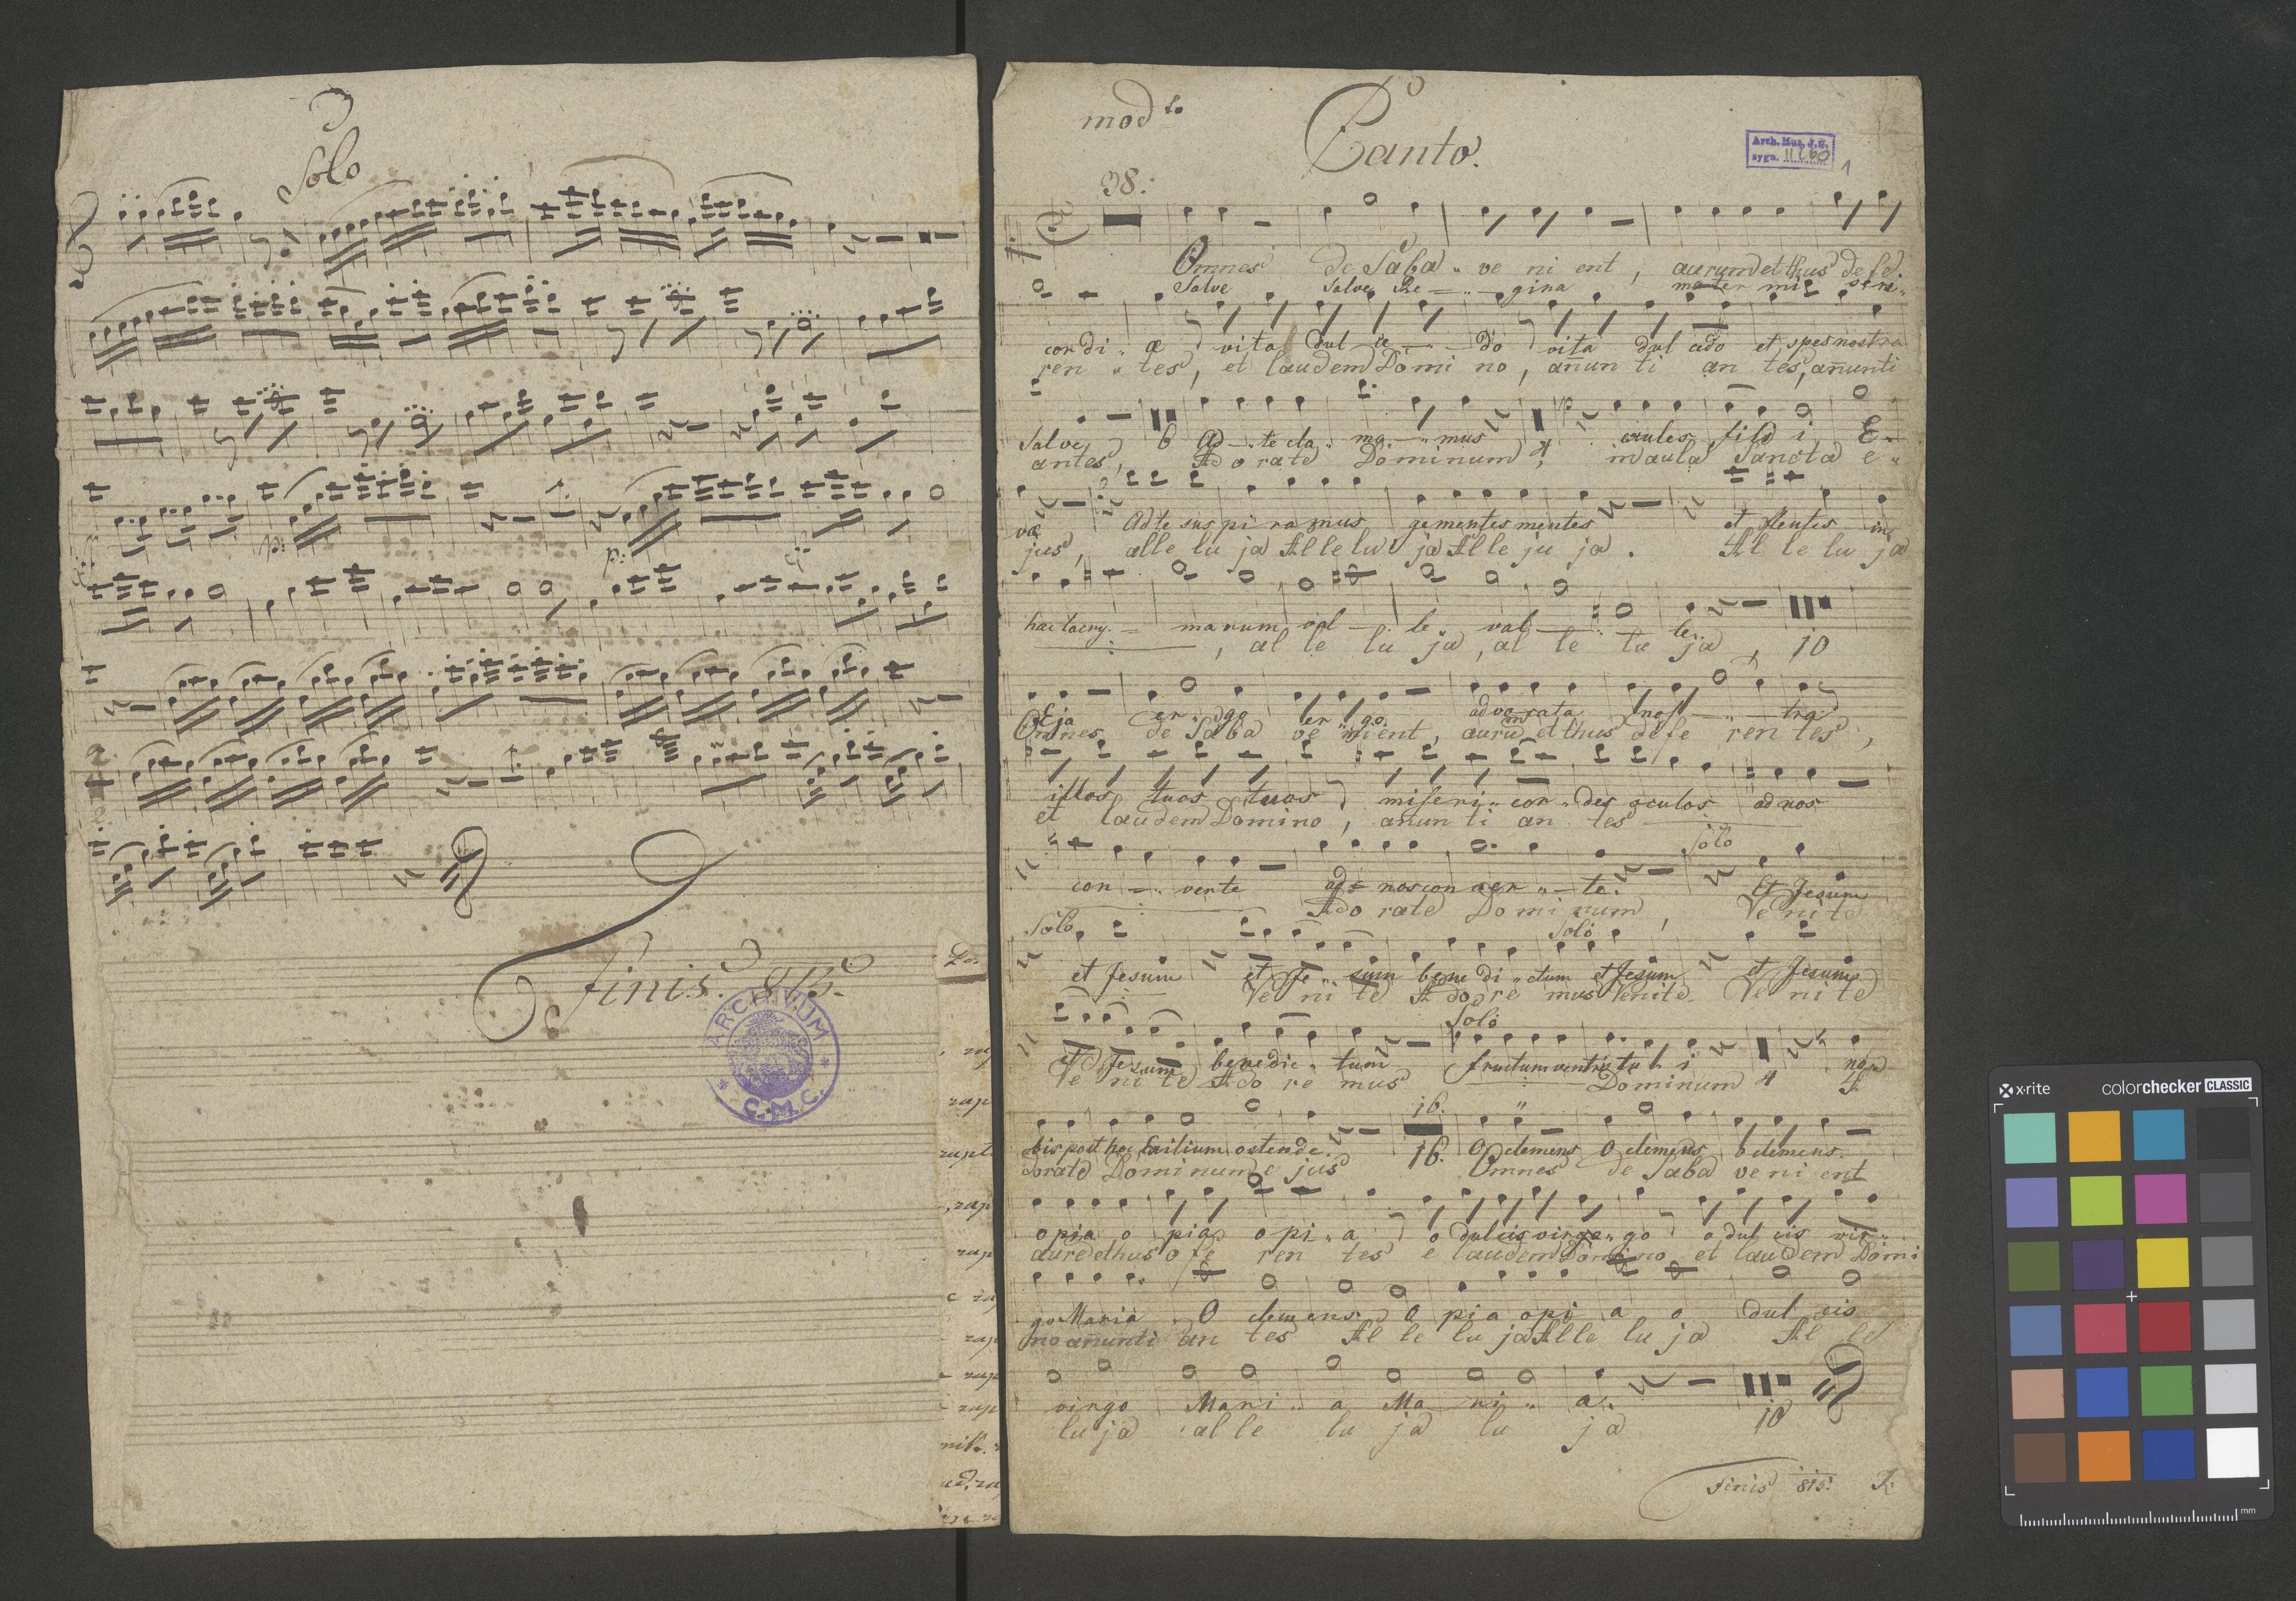 Solo
p:
p:
Finis. 815.
ARCHIVUM
C.M.C.
rap
rap
rap
rap
rap
mod to
Canto.
Arch. Muz. J. G.
sygn. 11260
1
38.
Omnes de Saba ve ni ent, aurum et thus defe.
Salve Salve Re gina mater mi seri
cordi æ vita dul ce do vita dul cedo et spes nostra
ren tes, et laudem Domi no, anun ti an tes, anunti
Salve 6 Ad te cla ma mus exules filii E
antes, Adorate Dominum 4, in aula Sancta e
væ Ad te sus pi ramus gementes mentes et flentes in
jus, alle lu ja Allelu ja Alle ju ja. Al le lu ja
hac lacry marum val le val le.
, al le lu ja, al le lu ja, 10
Eja er go er go advocata nost tra
Omnes de Saba ve nient, auru et thus defe ren tes,
illos tuos tuos miseri cor des oculos ad nos
et laudem Domino, anun ti an tes
Solo
con verte ad nos con ver te. Et Jesum
Adorate Dominum, Venite
Solo Solo
et Jesum et Je sum bene di ctum et Jesum et Jesum
Ve ni te Adore mus Venite Ve ni te
Solo
et Jesum benedic tum fructum ventris tu i no
Ve ni te Adore mus Dominum 4 A
16.
bis post hoc Exilium ostende. 16. O clemens O clemens O clemens.
dorate Dominum e jus Omnes de Saba ve ni ent
o pia o pia o pi a o dulcis virgo go o dul cis vir
aure et thus ofe ren tes e laudem Domino et laudem Domi
go Maria O clemens O pia o pi a o dul cis
no anunti an tes Al le lu ja Alle lu ja Al le
virgo Mari a Ma ri a.
lu ja al le lu ja lu ja 10
Finis 815. K
x-rite colorchecker CLASSIC
mm